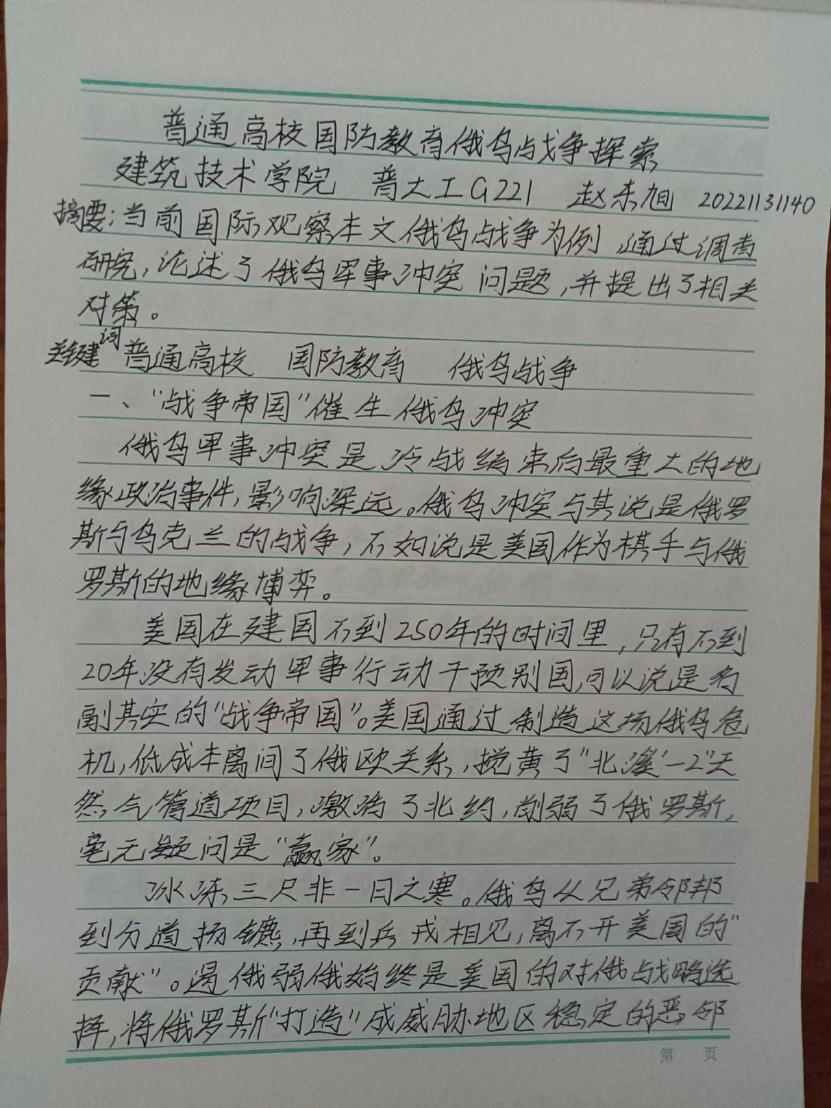 普通高校国防教育俄乌战争探索
建筑技术学院 普大工G221 赵东旭 20221131140
摘要:当前国际观察本文俄乌战争为例 通过调查
研究,论述了俄乌军事冲突 问题,并提出了相关
对策。
关键建词 普通高校 国防教育 俄乌战争
一、“战争帝国”催生俄乌冲突
俄乌军事冲突是冷战结束后最重大的地
缘政治事件,影响深远。俄乌冲突与其说是俄罗
斯与乌克兰的战争,不如说是美国作为棋手与俄
罗斯的地缘博弈。
美国在建国不到250年的时间里,只有不到
20年没有发动军事行动干预别国,可以说是名
副其实的“战争帝国”。美国通过制造这场俄乌危
机,低成本离间了俄欧关系,搅黄了“北溪-2”天
然气管道项目,激活了北约,削弱了俄罗斯,
毫无疑问是“赢家”。
冰冻三尺非一日之寒。俄乌从兄弟邻邦
到分道扬镳,再到兵戎相见,离不开美国的“
贡献”。遏俄弱俄始终是美国的对俄战略选
择,将俄罗斯“打造”成威胁地区稳定的恶邻
第 页